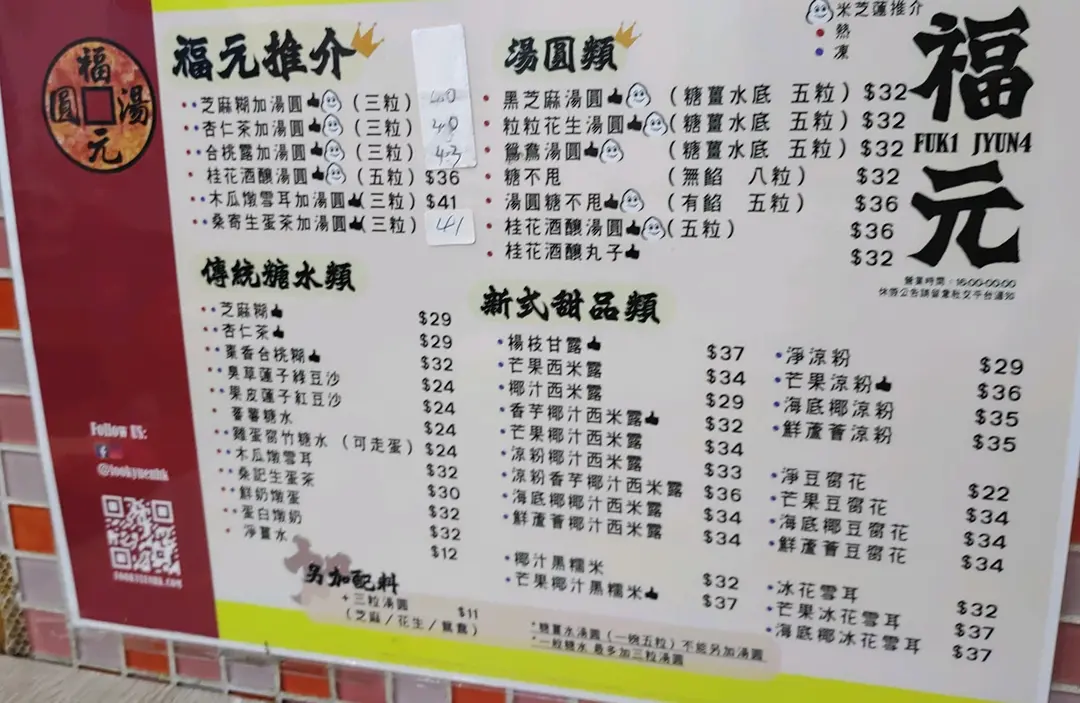 福
圓 湯
元
福元推介
芝麻糊加湯圓 (三粒) 40
杏仁茶加湯圓 (三粒) 40
合桃露加湯圓 (三粒) 43
桂花酒釀湯圓 (五粒) $36
木瓜燉雪耳加湯圓 (三粒) $41
桑寄生蛋茶加湯圓 (三粒) 41
傳統糖水類
芝麻糊 $29
杏仁茶 $29
棗香合桃糊 $32
臭草蓮子綠豆沙 $24
果皮蓮子紅豆沙 $24
蕃薯糖水 $24
雞蛋腐竹糖水 (可走蛋) $24
木瓜燉雪耳 $32
桑記生蛋茶 $30
鮮奶燉蛋 $32
蛋白燉奶 $32
淨薑水 $12
另加配料
+三粒湯圓 $11
(芝麻/花生/鴛鴦)
湯圓類
黑芝麻湯圓 (糖薑水底 五粒) $32
粒粒花生湯圓 (糖薑水底 五粒) $32
鴛鴦湯圓 (糖薑水底 五粒) $32
糖不甩 (無餡 八粒) $32
湯圓糖不甩 (有餡 五粒) $36
桂花酒釀湯圓 (五粒) $36
桂花酒釀丸子 $32
新式甜品類
楊枝甘露 $37
芒果西米露 $34
椰汁西米露 $29
香芋椰汁西米露 $32
芒果椰汁西米露 $34
涼粉椰汁西米露 $33
涼粉香芋椰汁西米露 $36
海底椰椰汁西米露 $34
鮮蘆薈椰汁西米露 $34
椰汁黑糯米 $32
芒果椰汁黑糯米 $37
*糖薑水湯圓 (一碗五粒) 不能另加湯圓
*一般糖水 最多加三粒湯圓
淨涼粉 $29
芒果涼粉 $36
海底椰涼粉 $35
鮮蘆薈涼粉 $35
淨豆腐花 $22
芒果豆腐花 $34
海底椰豆腐花 $34
鮮蘆薈豆腐花 $34
冰花雪耳 $32
芒果冰花雪耳 $37
海底椰冰花雪耳 $37
米芝蓮推介
熱
凍
福
FUK1 JYUN4
元
營業時間:16:00-00:00
休務公告請留意社交平台通知
Follow US: